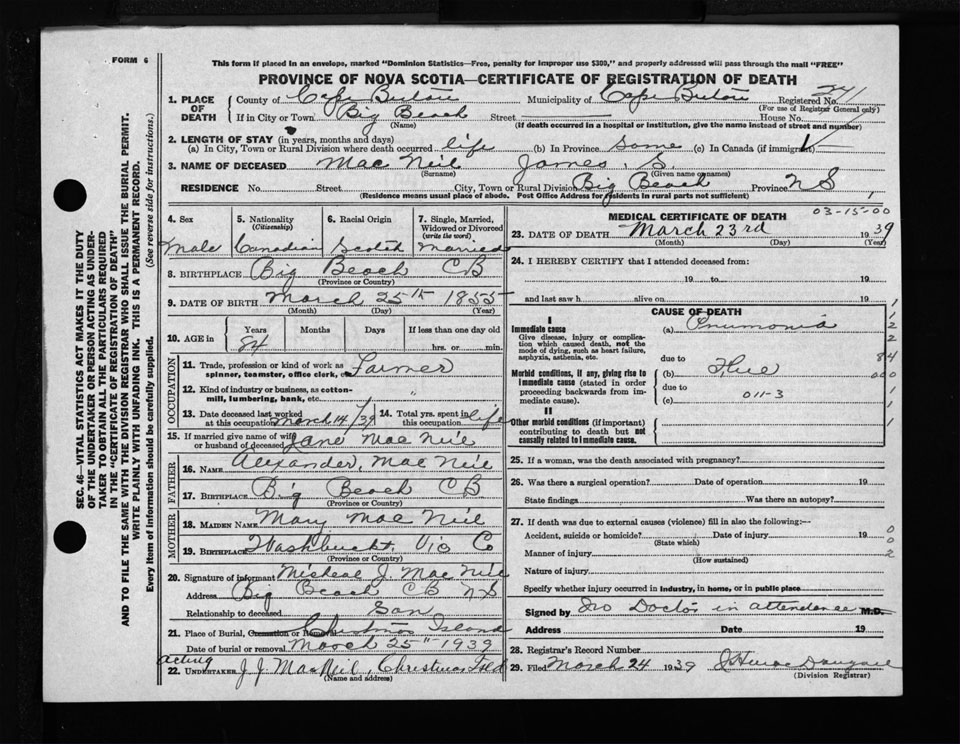 FORM 6
This form if placed in an envelope, marked "Dominion Statistics—Free, penalty for improper use $300," and properly addressed will pass through the mail "FREE"
PROVINCE OF NOVA SCOTIA—CERTIFICATE OF REGISTRATION OF DEATH
1. PLACE OF DEATH County of Cape Breton Municipality of Cape Breton Registered No. 241
(For use of Registrar General only)
If in City or Town Big Beach Street House No.
(Name) (If death occurred in a hospital or institution, give the name instead of street and number)
2. LENGTH OF STAY (in years, months and days)
(a) In City, Town or Rural Division where death occurred life (b) In Province Same (c) In Canada (if immigrant)
3. NAME OF DECEASED Mac Neil James, S.
(Surname) (Given name or names)
RESIDENCE No. Street City, Town or Rural Division Big Beach Province N S
(Residence means usual place of abode. Post Office Address for residents in rural parts not sufficient)
4. Sex 5. Nationality (Citizenship) 6. Racial Origin 7. Single, Married, Widowed or Divorced (write the word)
Male Canadian Scotch Married
8. BIRTHPLACE Big Beach CB
(Province or Country)
9. DATE OF BIRTH March 25th 1855
(Month) (Day) (Year)
10. AGE in Years Months Days If less than one day old
84 hrs. or min.
OCCUPATION
11. Trade, profession or kind of work as spinner, teamster, office clerk, etc. Farmer
12. Kind of industry or business, as cotton-mill, lumbering, bank, etc. "
13. Date deceased last worked at this occupation March 14/39 14. Total yrs. spent in this occupation life
15. If married give name of wife or husband of deceased Jane Mac Neil
FATHER
16. NAME Alexander, Mac Neil
17. BIRTHPLACE Big Beach CB
(Province or Country)
MOTHER
18. MAIDEN NAME Mary Mac Neil
19. BIRTHPLACE Washbuckt, Vic Co
(Province or Country)
20. Signature of informant Micheal J. Mac Neil
Address Big Beach CB N S
Relationship to deceased Son
21. Place of Burial, Cremation or Removal Christmas Island
Date of burial or removal March 25" 1939
Acting
22. UNDERTAKER J. J. MacNeil, Christmas Isld
(Name and address)
MEDICAL CERTIFICATE OF DEATH
03-15-00
1
23. DATE OF DEATH March 23rd 1939
(Month) (Day) (Year)
24. I HEREBY CERTIFY that I attended deceased from:
19 to 19
and last saw h alive on 19
CAUSE OF DEATH
I
Immediate cause (a) Pnumonia
Give disease, injury or complication which caused death, not the mode of dying, such as heart failure, asphyxia, asthenia, etc.
due to
Morbid conditions, if any, giving rise to immediate cause (stated in order proceeding backwards from immediate cause).
(b) Flue
due to
(c) 011-3
II
Other morbid conditions (if important) contributing to death but not causally related to immediate cause.
1
2
2
84
000
1
1
1
25. If a woman, was the death associated with pregnancy?
26. Was there a surgical operation? Date of operation 19
State findings Was there an autopsy?
27. If death was due to external causes (violence) fill in also the following:—
Accident, suicide or homicide? Date of injury 19
(State which)
Manner of injury
(How sustained)
Nature of injury
0
0
2
Specify whether injury occurred in industry, in home, or in public place
Signed by No Doctor in attendance M.D.
Address Date 19
28. Registrar's Record Number
29. Filed March 24 1939
(Division Registrar)
SEC. 46—VITAL STATISTICS ACT MAKES IT THE DUTY
OF THE UNDERTAKER OR PERSON ACTING AS UNDER-
TAKER TO OBTAIN ALL THE PARTICULARS REQUIRED
IN THE "CERTIFICATE OF REGISTRATION OF DEATH"
AND TO FILE THE SAME WITH THE DIVISION REGISTRAR WHO SHALL ISSUE THE BURIAL PERMIT.
WRITE PLAINLY WITH UNFADING INK. THIS IS A PERMANENT RECORD.
Every item of information should be carefully supplied. (See reverse side for instructions.)